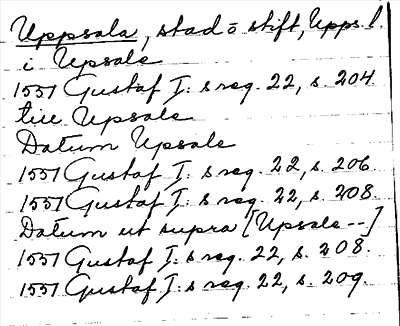 Uppsala, stad o stift, Upps. l.
i Upsale
1551 Gustaf I: s reg. 22, s. 204
till Upsale
Datum Upsale
1551 Gustaf I: s reg. 22, s. 206
1551 Gustaf I: s reg. 22, s. 208.
Datum ut supra [Upsale --]
1551 Gustaf I: s reg. 22, s. 208.
1551 Gustaf I: s reg. 22, s. 209.